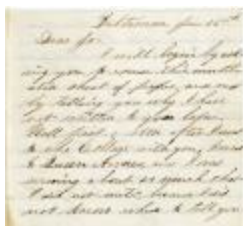 Baltimore Jan 16th
Dear Jo.
I will begin by ask
ing you to excuse this
sheet of paper, and
by telling you why I have
not written to you before.
Well first, soon after I came
to the College with you, I went
to Queen Annes, and I was
moving about so much that
I did not write, because I did
not know where to tell you